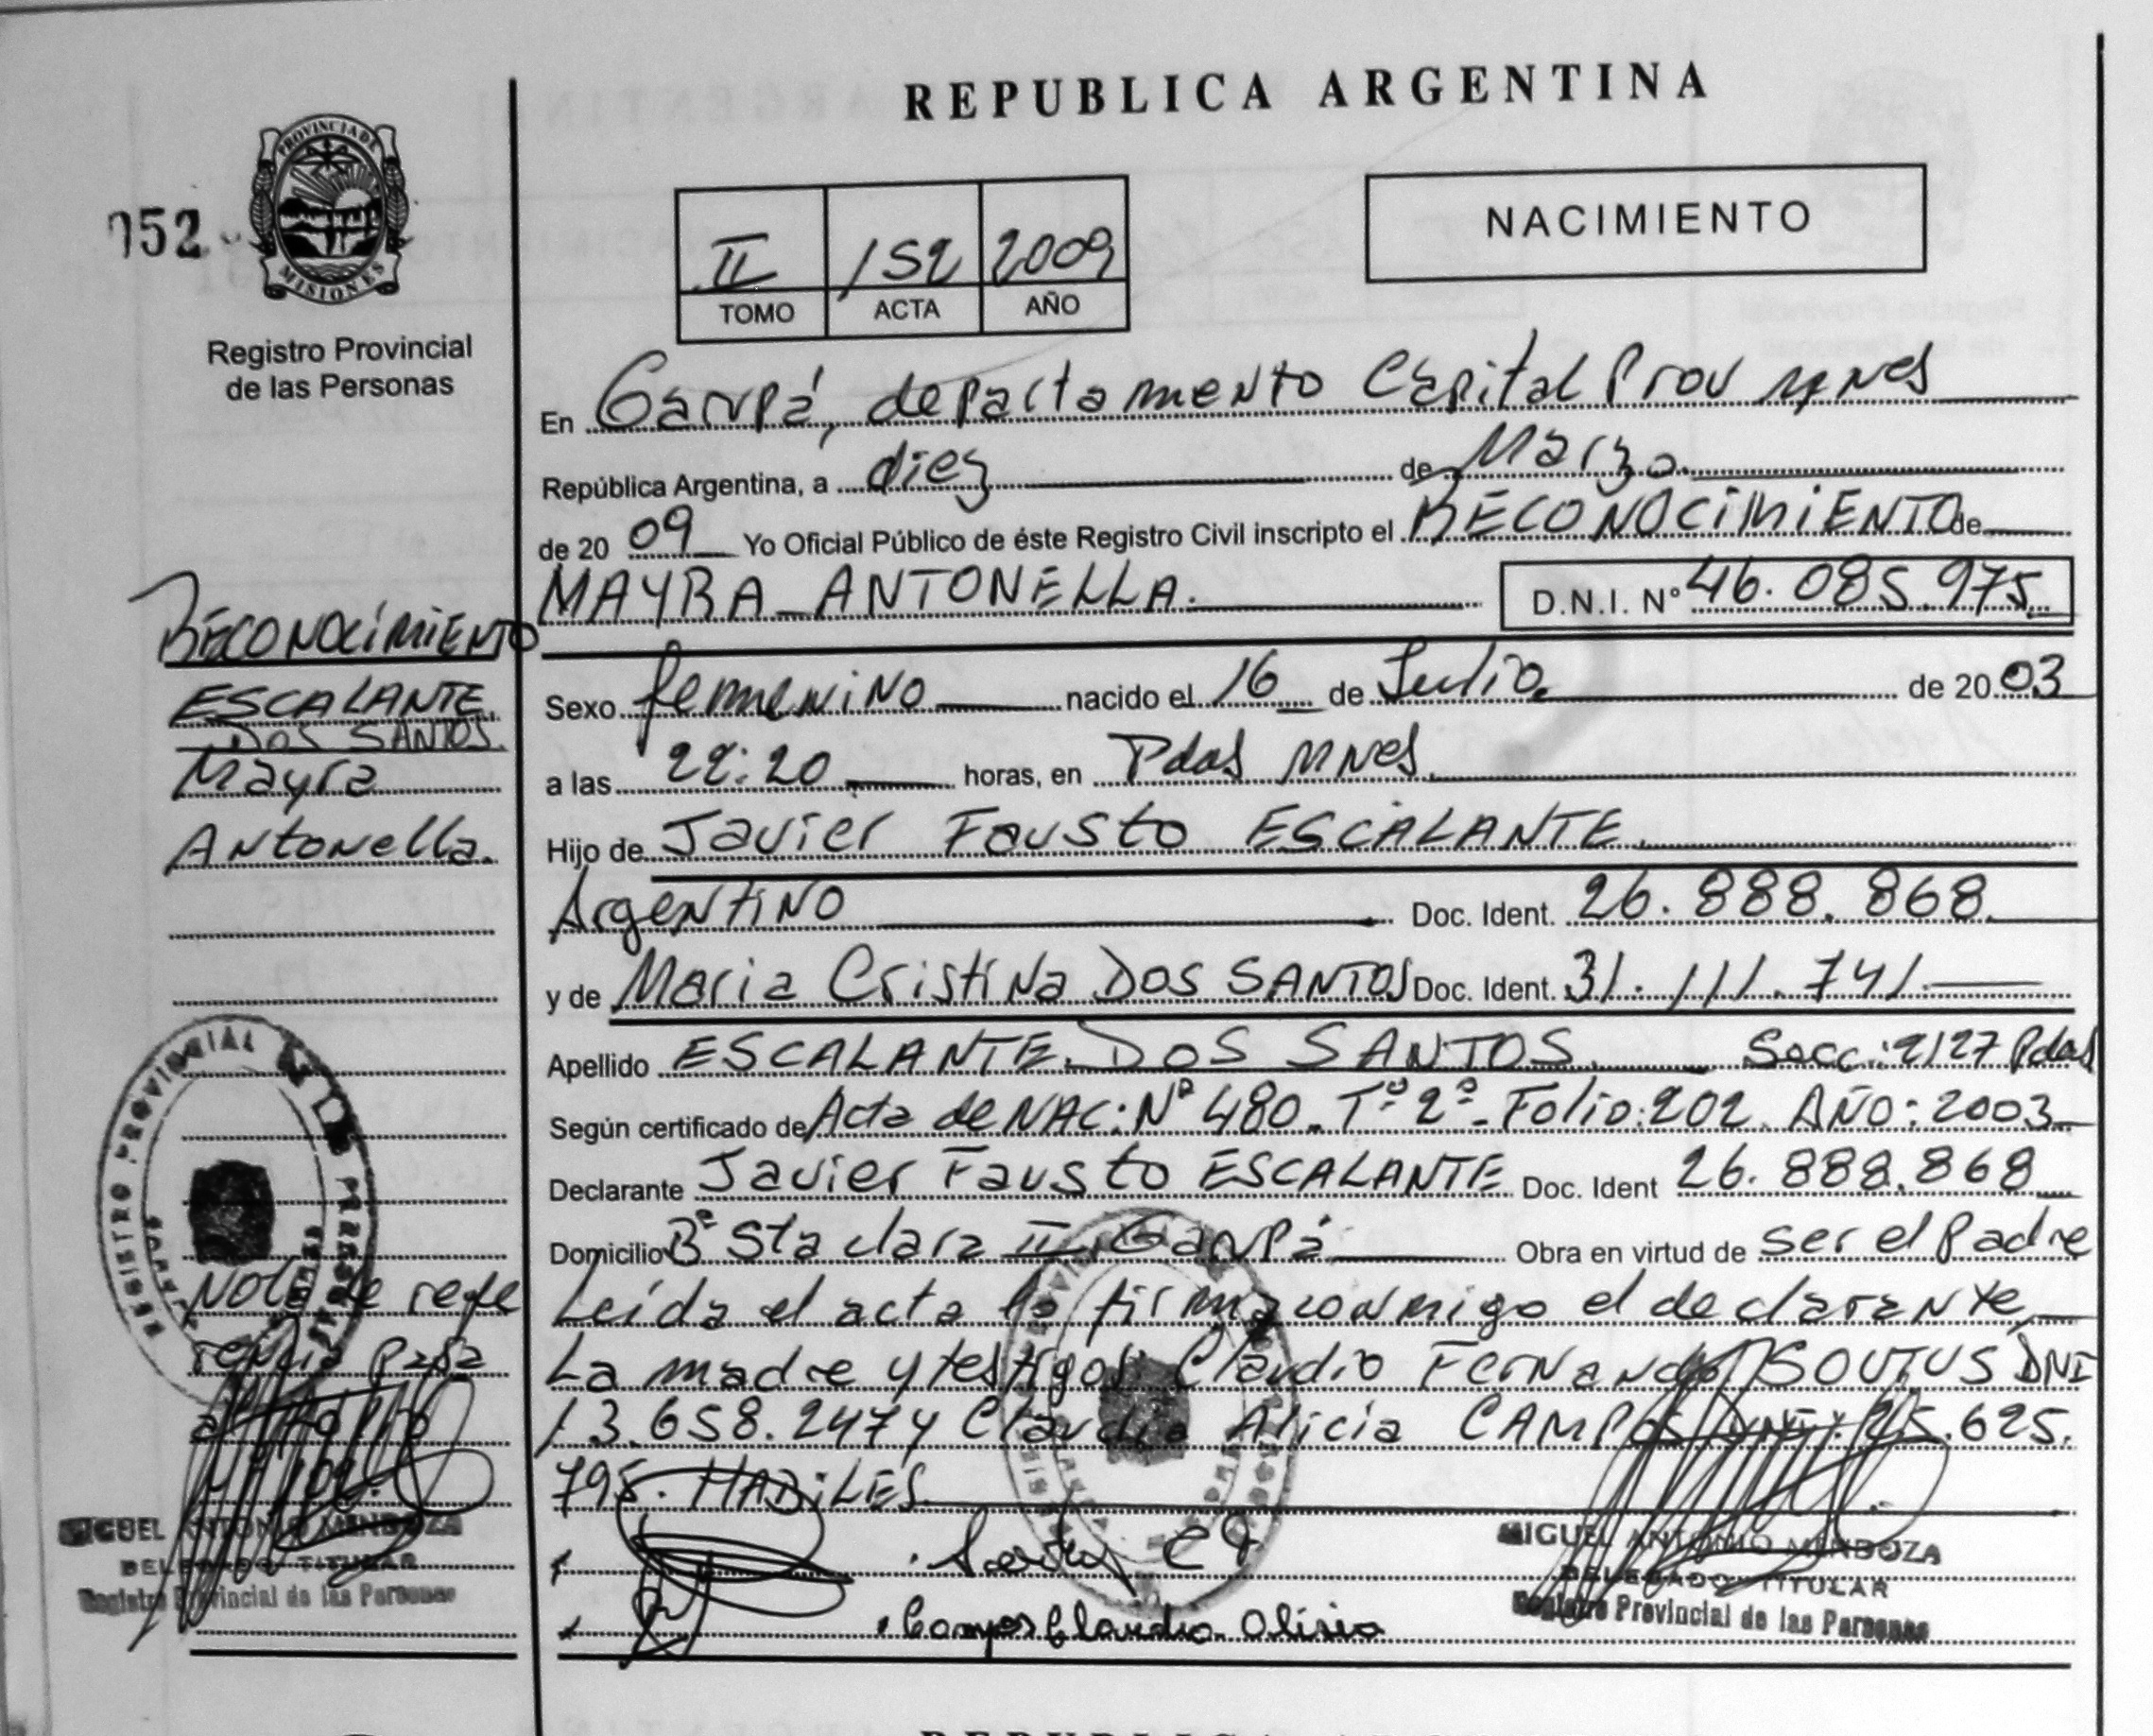 REPUBLICA ARGENTINA
PROVINCIA DE
MISIONES
152
Registro Provincial
de las Personas
II 152 2009
TOMO ACTA AÑO
NACIMIENTO
En Garupá, departamento Capital Prov Mnes
República Argentina, a diez de Marzo
de 2009 Yo Oficial Público de éste Registro Civil inscripto el RECONOCIMIENTO de
MAYRA ANTONELLA. D.N.I. Nº 46.085.975
Sexo femenino nacido el 16 de Julio de 2003
a las 22:20 horas, en Pdas Mnes
Hijo de Javier Fausto ESCALANTE
Argentino Doc. Ident. 26.888.868
y de Maria Cristina DOS SANTOS Doc. Ident. 31.111.741
Apellido ESCALANTE DOS SANTOS Secc: 2127 Pdas
Según certificado de Acta de NAC: Nº 480. Tº 2º - Folio: 202. AÑO: 2003
Declarante Javier Fausto ESCALANTE Doc. Ident 26.888.868
Domicilio Bº Sta clara II Garupá Obra en virtud de ser el Padre
Leída el acta la firma conmigo el declarante,
La madre y testigos Claudio Fernando SOUTUS DNI
13.658.247 y Claudia Alicia CAMPOS DNI: 25.625.
795. HABILES
Campos Claudia Alicia
MIGUEL ANTONIO MENDOZA
DELEGADO TITULAR
Registro Provincial de las Personas
RECONOCIMIENTO
ESCALANTE
DOS SANTOS
Mayra
Antonella.
REGISTRO PROVINCIAL DE LAS PERSONAS
Nota de refe
rencia pasa
MIGUEL ANTONIO MENDOZA
DELEGADO TITULAR
Registro Provincial de las Personas